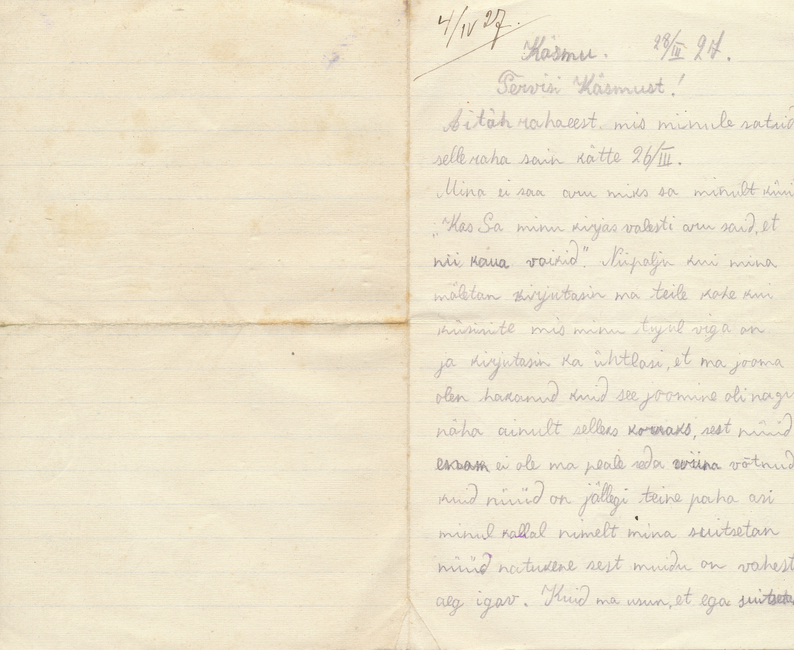 4/IV 27.
Käsmu. 28/III 27.
Tervisi Käsmust!
Aitäh rahaeest. mis minule saatsid
selle raha sain kätte 26/III.
Mina ei saa aru miks sa minult küsi
"Kas Sa minu kirjas valesti aru said, et
nii kaua vaikid". Niipalju kui mina
mäletan kirjutasin ma teile kohe kui
küsisite mis minu tujul viga on
ja kirjutasin ka ühtlasi, et ma jooma
olen hakanud kuid see joomine oli nagu
näha ainult selleks korraks, sest nüüd
enam ei ole ma peale seda viina võtnud
kuid nüüd on jällegi teine paha asi
minul kallal nimelt mina suitsetan
nüüd natukene sest muidu on vahest
aeg igav. Kuid ma usun, et ega suitseta